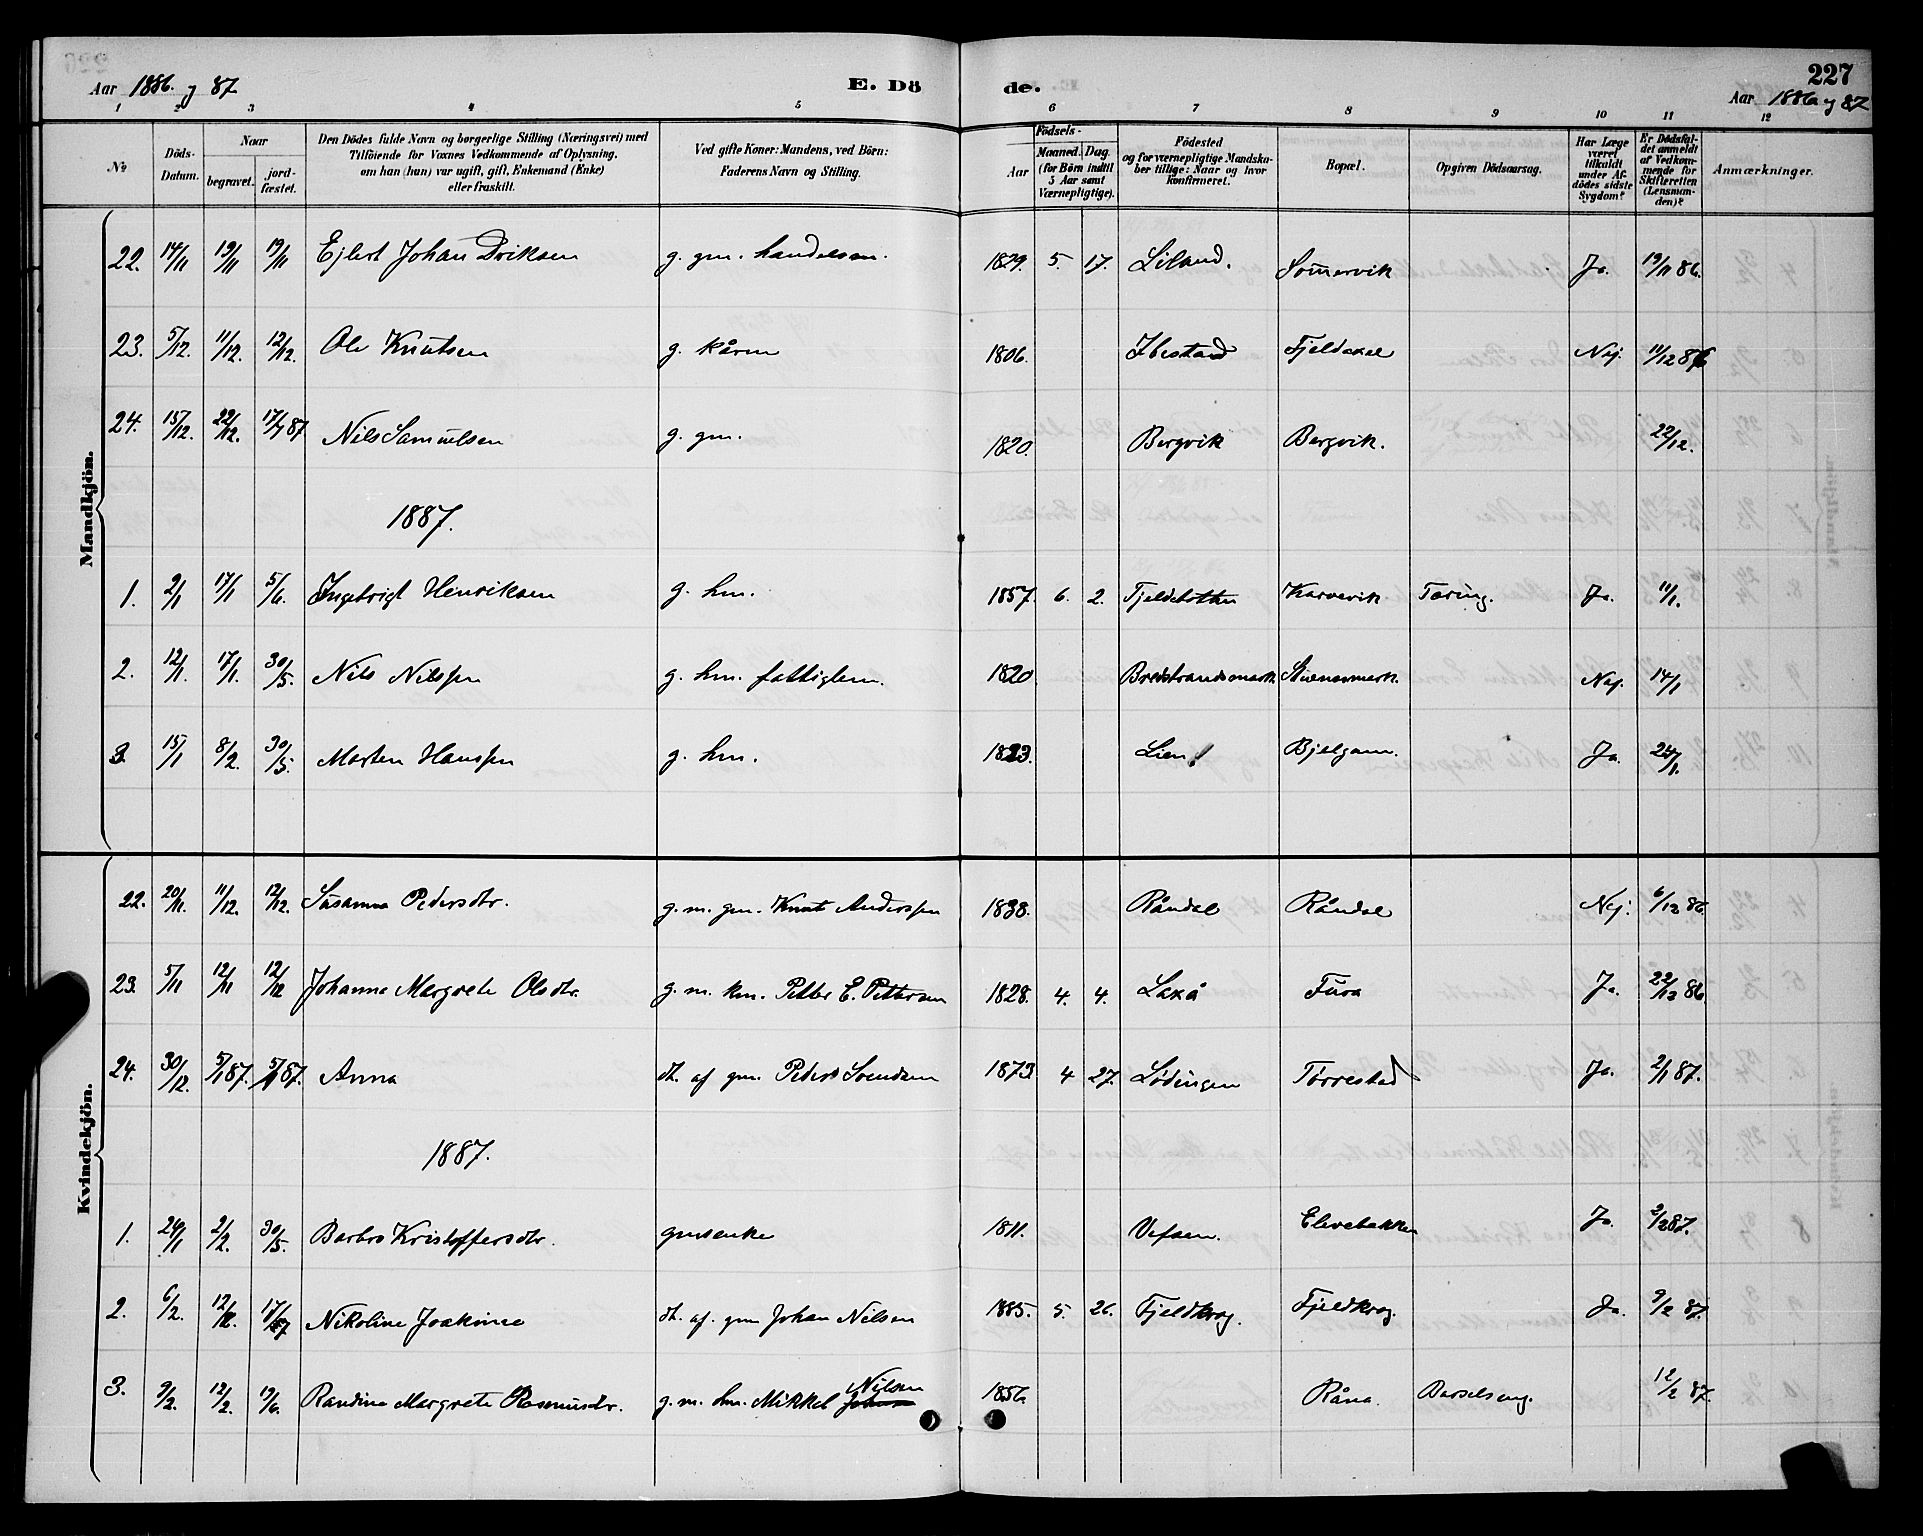 227
Aar 1886. og 87 E. Dö de. Aar 1886 og 87
1 2 3 4 5 6 7 8 9 10 11 12
No Döds-Datum. Naar begravet. jordfæstet. Den Dödes fulde Navn og borgerlige Stilling (Næringsvei) med Tilföiende for Voxnes Vedkommende af Oplysning, om han (hun) var ugift, gift, Enkemand (Enke) eller fraskilt. Ved gifte Koner: Mandens, ved Börn: Faderens Navn og Stilling. Födsels- Aar Maaned. Dag. (for Börn indtil 5 Aar samt Værnepligtige). Födested og for værnepligtige Mandskaber tillige: Naar og hvor konfirmeret. Bopæl. Opgiven Dödsaarsag. Har Læge været tilkaldt under Afdödes sidste Sygdom? Er Dödsfaldet anmeldt af Vedkommende for Skifteretten (Lensmanden)? Anmærkninger.
Mandkjön.
22. 14/11 19/11 19/11 Ejlert Johan Driksen g. gm. handelsm. 1829. 5. 17. Liland. Sommervik Ja. 19/11 86.
23. 5/12. 11/12. 12/12. Ole Knutsen g. kårm 1806. Ibestad Fjeldaxel Nej. 11/12 86
24. 15/12. 22/12. 17/1 87 Nils Samuelsen g. gm. 1820. Bergvik Bergvik. 22/12.
1887.
1. 2/1 17/1 5/6. Ingebrigt Henriksen g. hm. 1857. 6. 2. Fjeldbotten Karvevik Tæring. Ja. 11/1.
2. 12/1. 17/1. 30/5. Nils Nilssen g. hm. fattiglem. 1820 Bredstrandsmark. Stuenesmark. Nej. 14/1
3. 15/1 8/2. 30/5. Morten Hanssen g. hm. 1823. Lien Bjelgam. Ja. 24/1.
Kvindekjön.
22. 20/11. 11/12. 12/12. Susanna Pedersdtr. g. m. gm. Knut Anderssen 1838. Råndal Råndal Nej. 6/12 86.
23. 5/11 12/11 12/12 Johanna Margrete Olsdtr. g. m. km. Petter E. Pettersen 1828. 4. 4. Laxå Fura Ja. 22/12 86
24. 30/12. 5/1 87. 5/1 87. Anna dt. af gm. Peder Svendsen 1873. 4 27. Lødingen Tørrestad Ja. 2/1 87.
1887.
1. 24/1 2/2. 30/5. Barbro Kristoffersdtr. gmsenke 1811. Vefsen. Elvebakken Ja. 2/2 87.
2. 6/2. 12/2. 17/ Nikoline Joakime dt. af. gm Johan Nilsen 1885. 5. 26. Fjeldkrog. Fjeldkrog. Ja. 9/2 87.
3. 9/2. 12/2. 19/6. Randine Margrete Rasmusdtr. g. m. hm. Mikkel Nilsen 1856. Råna. Barselseng. 12/2 87.